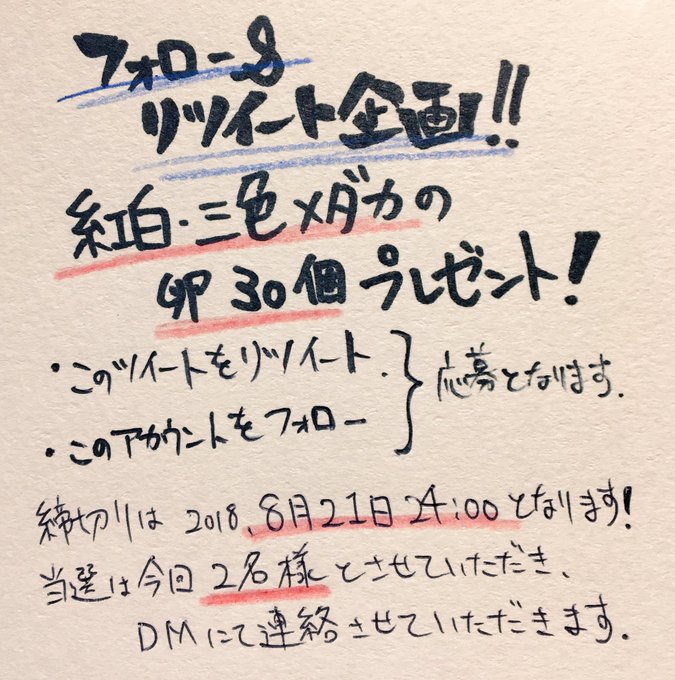 フォロー&
リツイート企画!!
紅白・三色メダカの
卵30個プレゼント!
・このツイートをリツイート.
・このアカウントをフォロー
応募となります.
締切りは 2018.8月21日24:00となります!
当選は今回2名様とさせていただき、
DMにて連絡させていただきます.